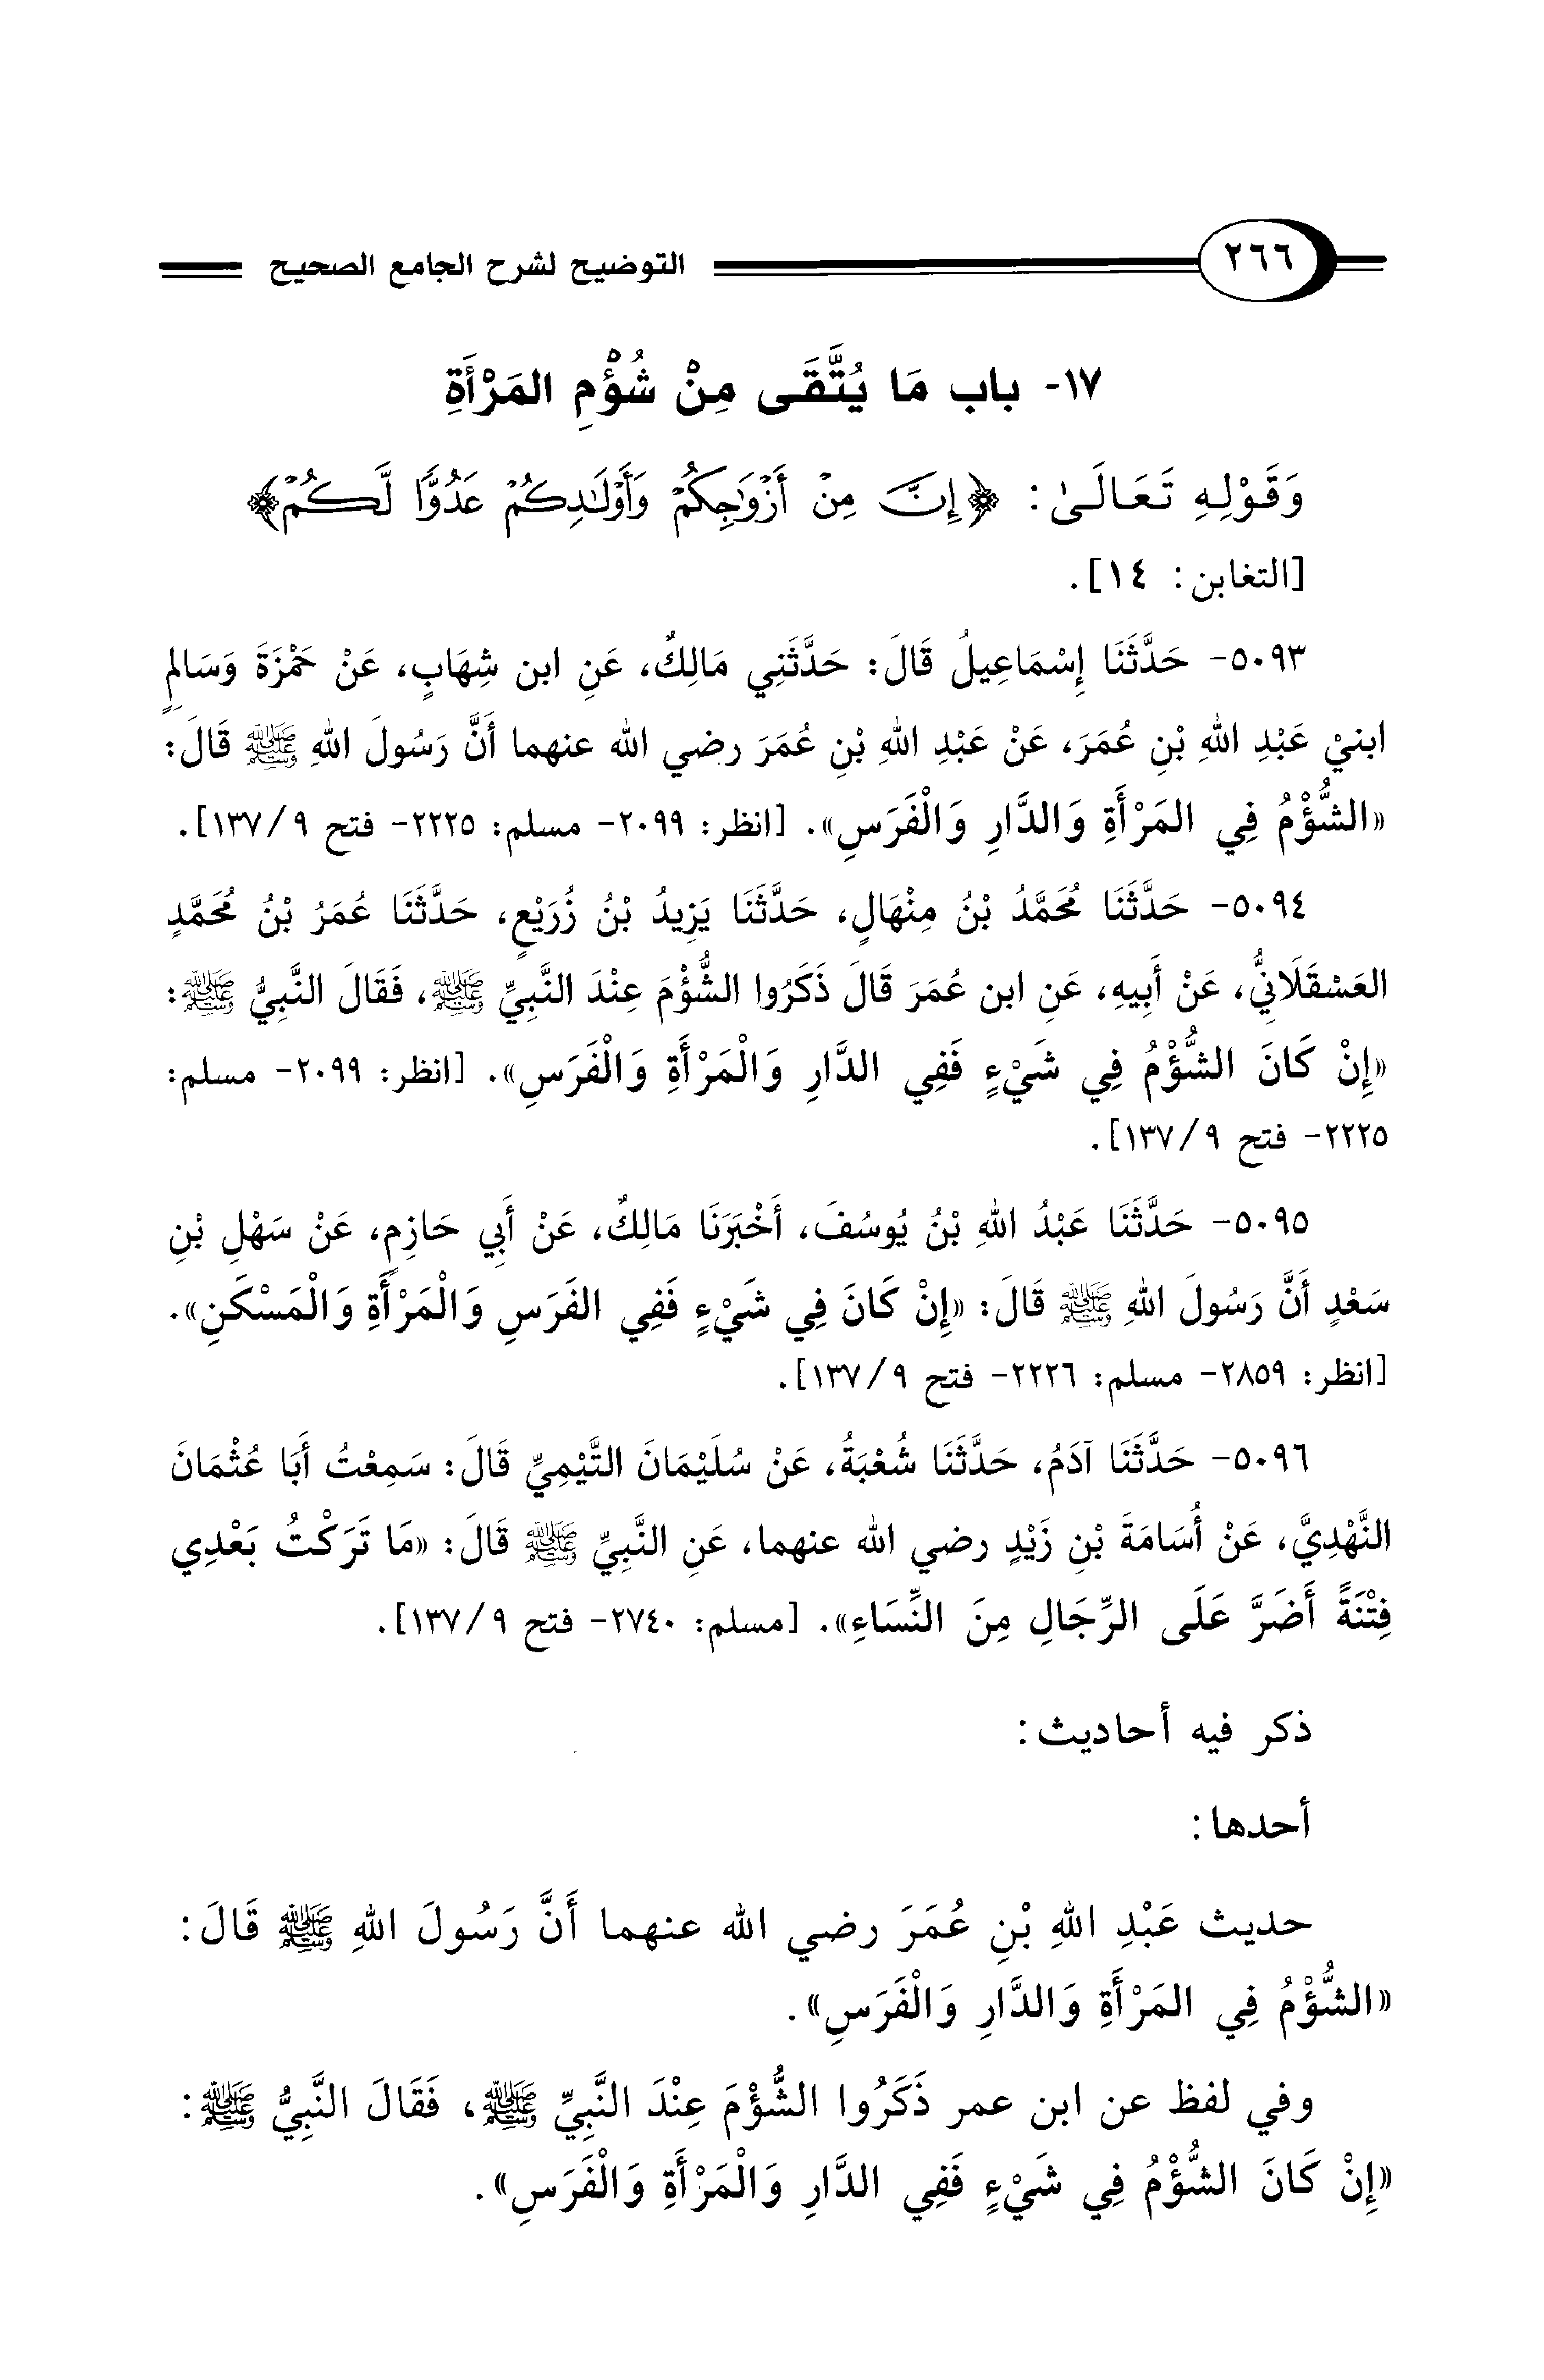 ٢٦٦ التوضيح لشرح الجامع الصحيح
١٧- باب مَا يُتَّقَى مِنْ شُؤْمِ المَرْأَةِ
وَقَوْلِهِ تَعَالَىٰ: ﴿إِنَّ مِنْ أَزْوَٰجِكُمْ وَأَوْلَٰدِكُمْ عَدُوًّا لَّكُمْ﴾
[التغابن: ١٤].
٥٠٩٣- حَدَّثَنَا إِسْمَاعِيلُ قَالَ: حَدَّثَنِي مَالِكٌ، عَنِ ابن شِهَابٍ، عَنْ حَمْزَةَ وَسَالِمٍ
ابنيْ عَبْدِ اللهِ بْنِ عُمَرَ، عَنْ عَبْدِ اللهِ بْنِ عُمَرَ رضي الله عنهما أَنَّ رَسُولَ اللهِ ﷺ قَالَ:
«الشُّؤْمُ فِي المَرْأَةِ وَالدَّارِ وَالْفَرَسِ». [انظر: ٢٠٩٩- مسلم: ٢٢٢٥- فتح ٩/ ١٣٧].
٥٠٩٤- حَدَّثَنَا مُحَمَّدُ بْنُ مِنْهَالٍ، حَدَّثَنَا يَزِيدُ بْنُ زُرَيْعٍ، حَدَّثَنَا عُمَرُ بْنُ مُحَمَّدٍ
العَسْقَلَانِيُّ، عَنْ أَبِيهِ، عَنِ ابن عُمَرَ قَالَ ذَكَرُوا الشُّؤْمَ عِنْدَ النَّبِيِّ ﷺ، فَقَالَ النَّبِيُّ ﷺ:
«إِنْ كَانَ الشُّؤْمُ فِي شَيْءٍ فَفِي الدَّارِ وَالْمَرْأَةِ وَالْفَرَسِ». [انظر: ٢٠٩٩- مسلم:
٢٢٢٥- فتح ٩/ ١٣٧].
٥٠٩٥- حَدَّثَنَا عَبْدُ اللهِ بْنُ يُوسُفَ، أَخْبَرَنَا مَالِكٌ، عَنْ أَبِي حَازِمٍ، عَنْ سَهْلِ بْنِ
سَعْدٍ أَنَّ رَسُولَ اللهِ ﷺ قَالَ: «إِنْ كَانَ فِي شَيْءٍ فَفِي الفَرَسِ وَالْمَرْأَةِ وَالْمَسْكَنِ».
[انظر: ٢٨٥٩- مسلم: ٢٢٢٦- فتح ٩/ ١٣٧].
٥٠٩٦- حَدَّثَنَا آدَمُ، حَدَّثَنَا شُعْبَةُ، عَنْ سُلَيْمَانَ التَّيْمِيِّ قَالَ: سَمِعْتُ أَبَا عُثْمَانَ
النَّهْدِيَّ، عَنْ أُسَامَةَ بْنِ زَيْدٍ رضي الله عنهما، عَنِ النَّبِيِّ ﷺ قَالَ: «مَا تَرَكْتُ بَعْدِي
فِتْنَةً أَضَرَّ عَلَى الرِّجَالِ مِنَ النِّسَاءِ». [مسلم: ٢٧٤٠- فتح ٩/ ١٣٧].
ذكر فيه أحاديث:
أحدها:
حديث عَبْدِ اللهِ بْنِ عُمَرَ رضي الله عنهما أَنَّ رَسُولَ اللهِ ﷺ قَالَ:
«الشُّؤْمُ فِي المَرْأَةِ وَالدَّارِ وَالْفَرَسِ».
وفي لفظ عن ابن عمر ذَكَرُوا الشُّؤْمَ عِنْدَ النَّبِيِّ ﷺ، فَقَالَ النَّبِيُّ ﷺ:
«إِنْ كَانَ الشُّؤْمُ فِي شَيْءٍ فَفِي الدَّارِ وَالْمَرْأَةِ وَالْفَرَسِ».